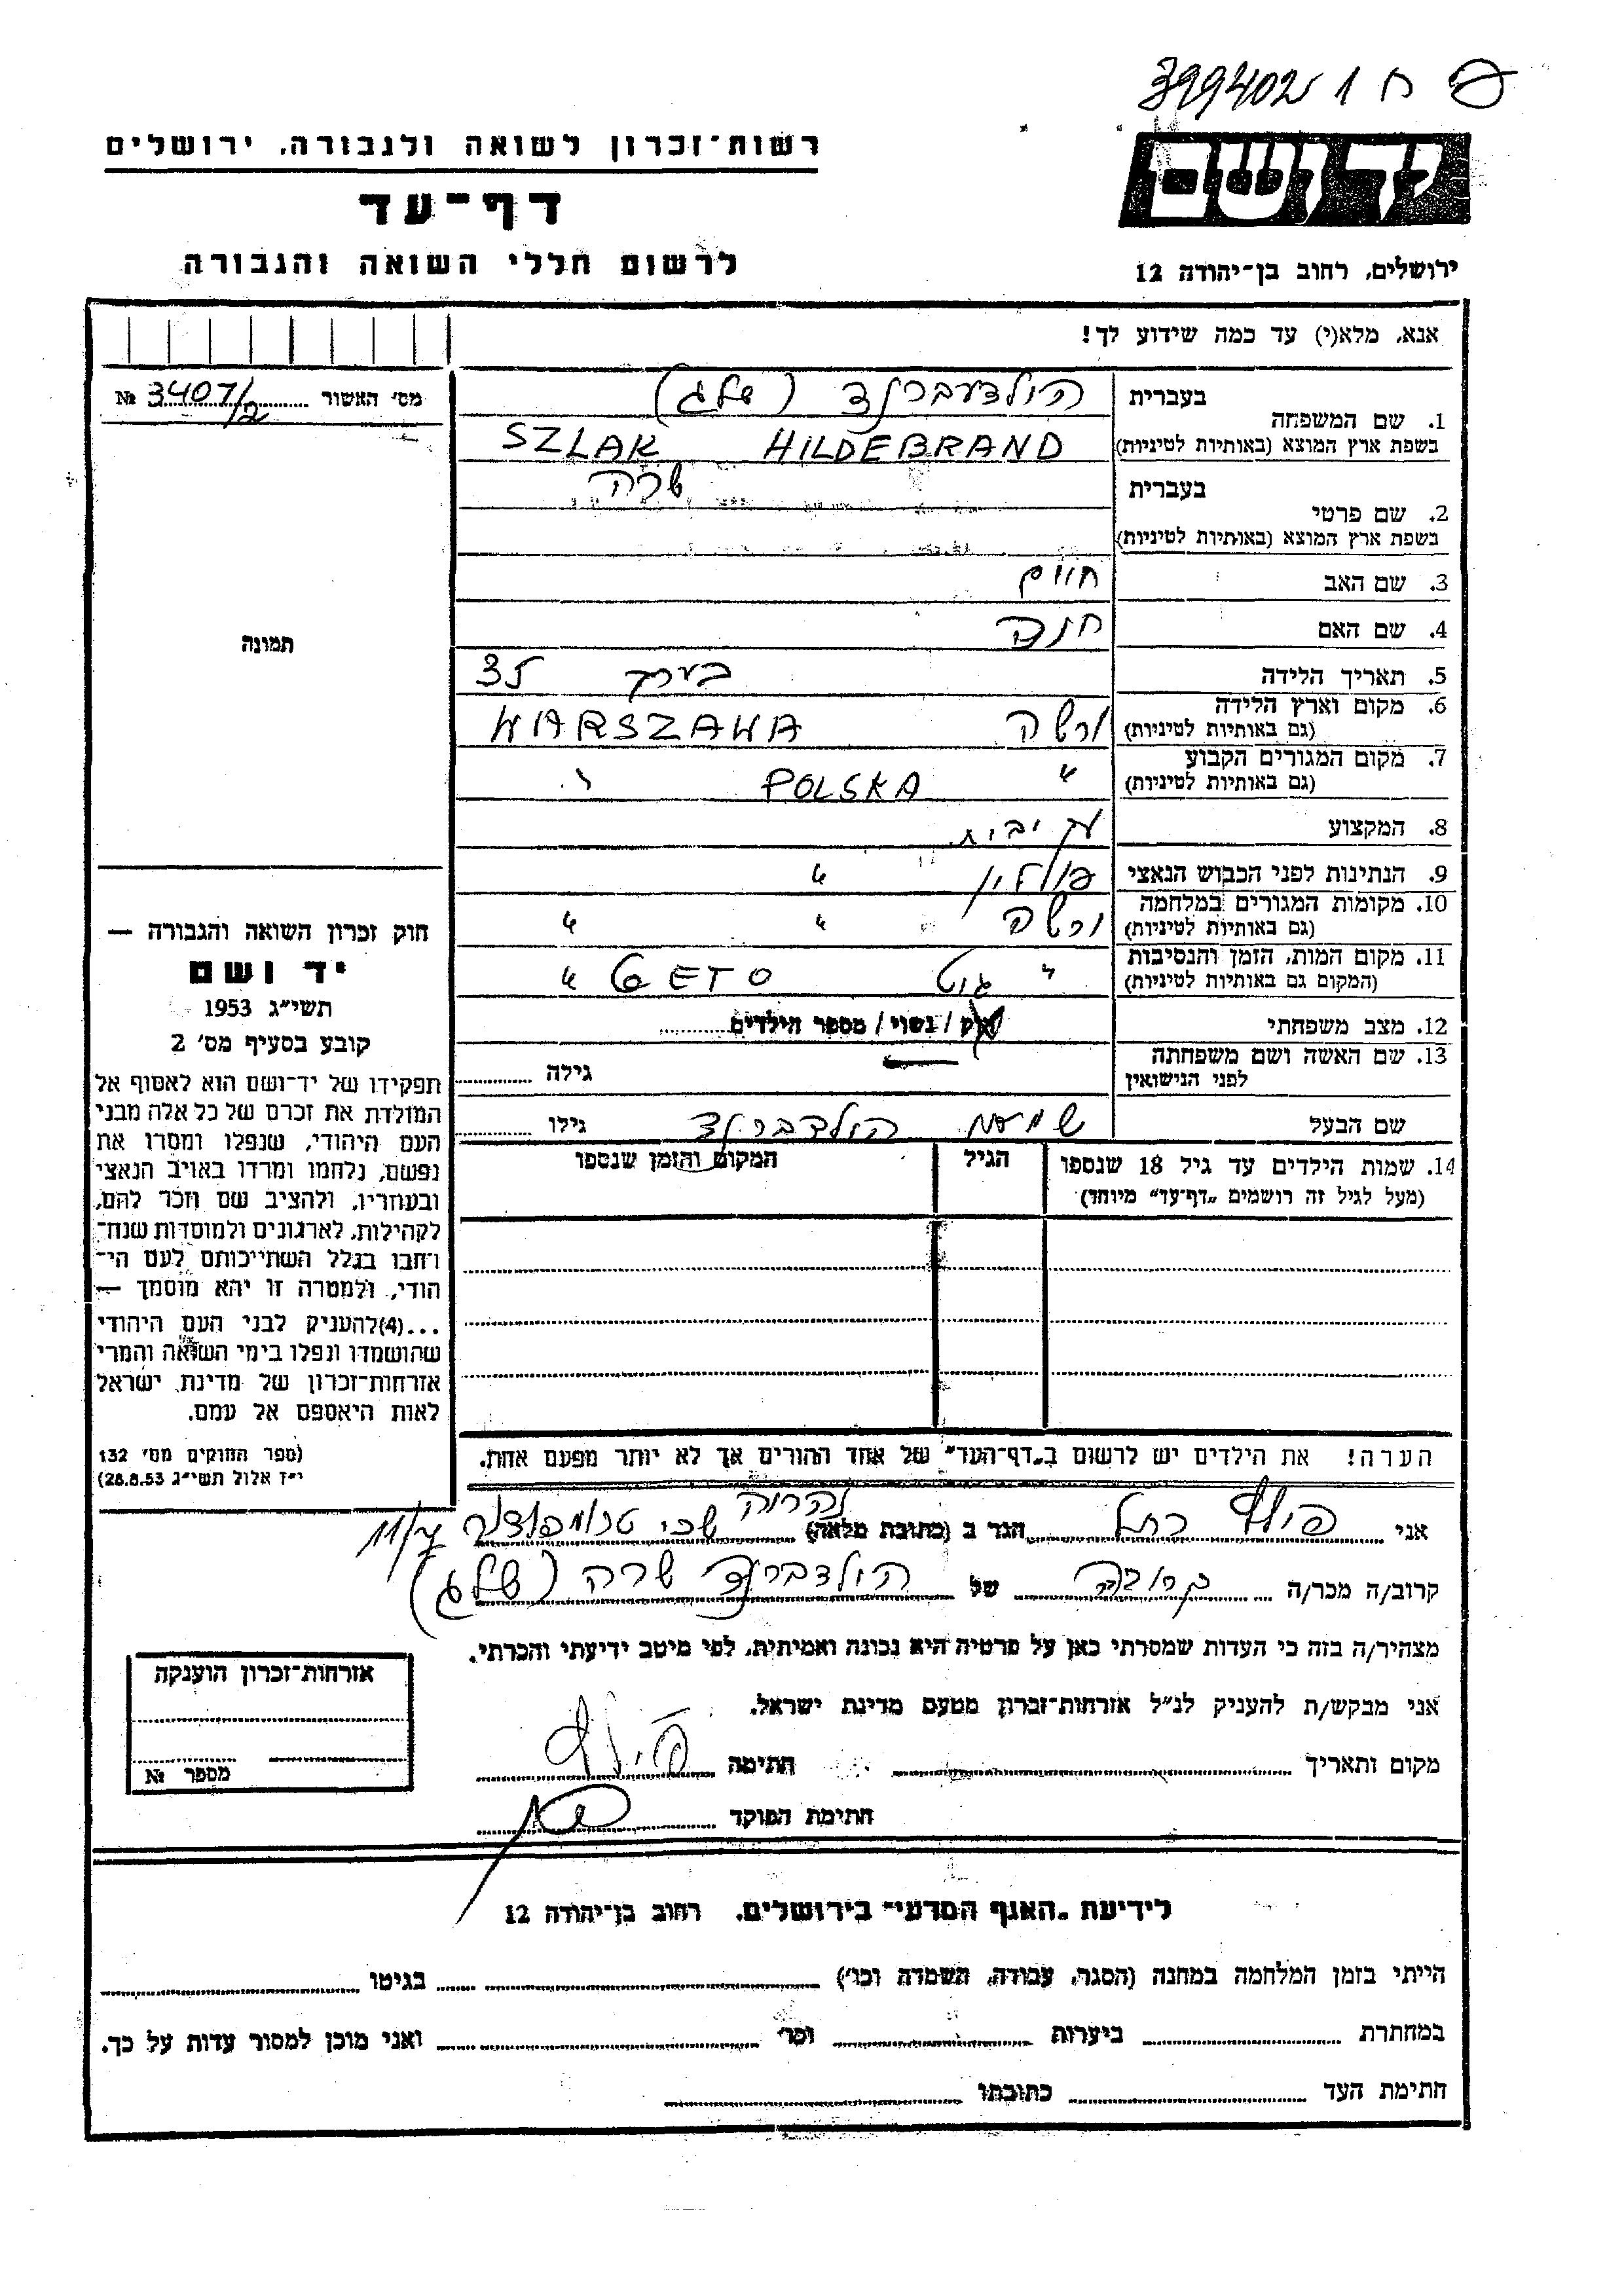 פ ח 1 399402
רשות־זכרון לשואה ולגבורה, ירושלים
ידושם
דף־עד
לרשום חללי השואה והגבורה
ירושלים, רחוב בן־יהודה 12
אנא, מלא(י) עד כמה שידוע לך!
מס' האשור 3407/2 №
בעברית
1. שם המשפחה
בשפת ארץ המוצא (באותיות לטיניות) HILDEBRAND SZLAK
בעברית שרה
2. שם פרטי
בשפת ארץ המוצא (באותיות לטיניות)
3. שם האב חיים
4. שם האם חנה
תמונה
5. תאריך הלידה בערך 35
6. מקום וארץ הלידה ורשה WARSZAWA
(גם באותיות לטיניות)
7. מקום המגורים הקבוע " POLSKA
(גם באותיות לטיניות)
8. המקצוע
9. הנתינות לפני הכבוש הנאצי פולין "
10. מקומות המגורים במלחמה ורשה " "
(גם באותיות לטיניות)
11. מקום המות, הזמן והנסיבות " גיטו GETO "
(המקום גם באותיות לטיניות)
12. מצב משפחתי רוק / נשוי / מספר הילדים
13. שם האשה ושם משפחתה
לפני הנישואין גילה
שם הבעל הילדברנד גילו
14. שמות הילדים עד גיל 18 שנספו הגיל המקום והזמן שנספו
(מעל לגיל זה רושמים „דף־עד" מיוחד)
חוק זכרון השואה והגבורה —
יד ושם
תשי"ג 1953
קובע בסעיף מס' 2
תפקידו של יד־ושם הוא לאסוף אל
המולדת את זכרם של כל אלה מבני
העם היהודי, שנפלו ומסרו את
נפשם, נלחמו ומרדו באויב הנאצי
ובעוזריו, ולהציב שם וזכר להם,
לקהילות, לארגונים ולמוסדות שנח־
רבו בגלל השתייכותם לעם הי־
הודי, ולמטרה זו יהא מוסמך —
...(4) להעניק לבני העם היהודי
שהושמדו ונפלו בימי השואה והמרי
אזרחות־זכרון של מדינת ישראל
לאות היאספם אל עמם.
(ספר החוקים מס' 132
י"ז אלול תשי"ג 28.8.53)
הערה! את הילדים יש לרשום ב„דף־העד" של אחד ההורים אך לא יותר מפעם אחת.
נהריה
אני רחל הגר ב (כתובת מלאה)
קרוב/ה מכר/ה קרובה של הילדברנד שרה
מצהיר/ה בזה כי העדות שמסרתי כאן על פרטיה היא נכונה ואמיתית, לפי מיטב ידיעתי והכרתי.
אני מבקש/ת להעניק לנ"ל אזרחות־זכרון מטעם מדינת ישראל.
מקום ותאריך חתימה
חתימת הפוקד
אזרחות־זכרון הוענקה
מספר №
לידיעת „האגף המדעי" בירושלים, רחוב בן־יהודה 12
הייתי בזמן המלחמה במחנה (הסגר, עבודה, השמדה וכו') בגיטו
במחתרת ביערות וכו' ואני מוכן למסור עדות על כך.
חתימת העד כתובתו